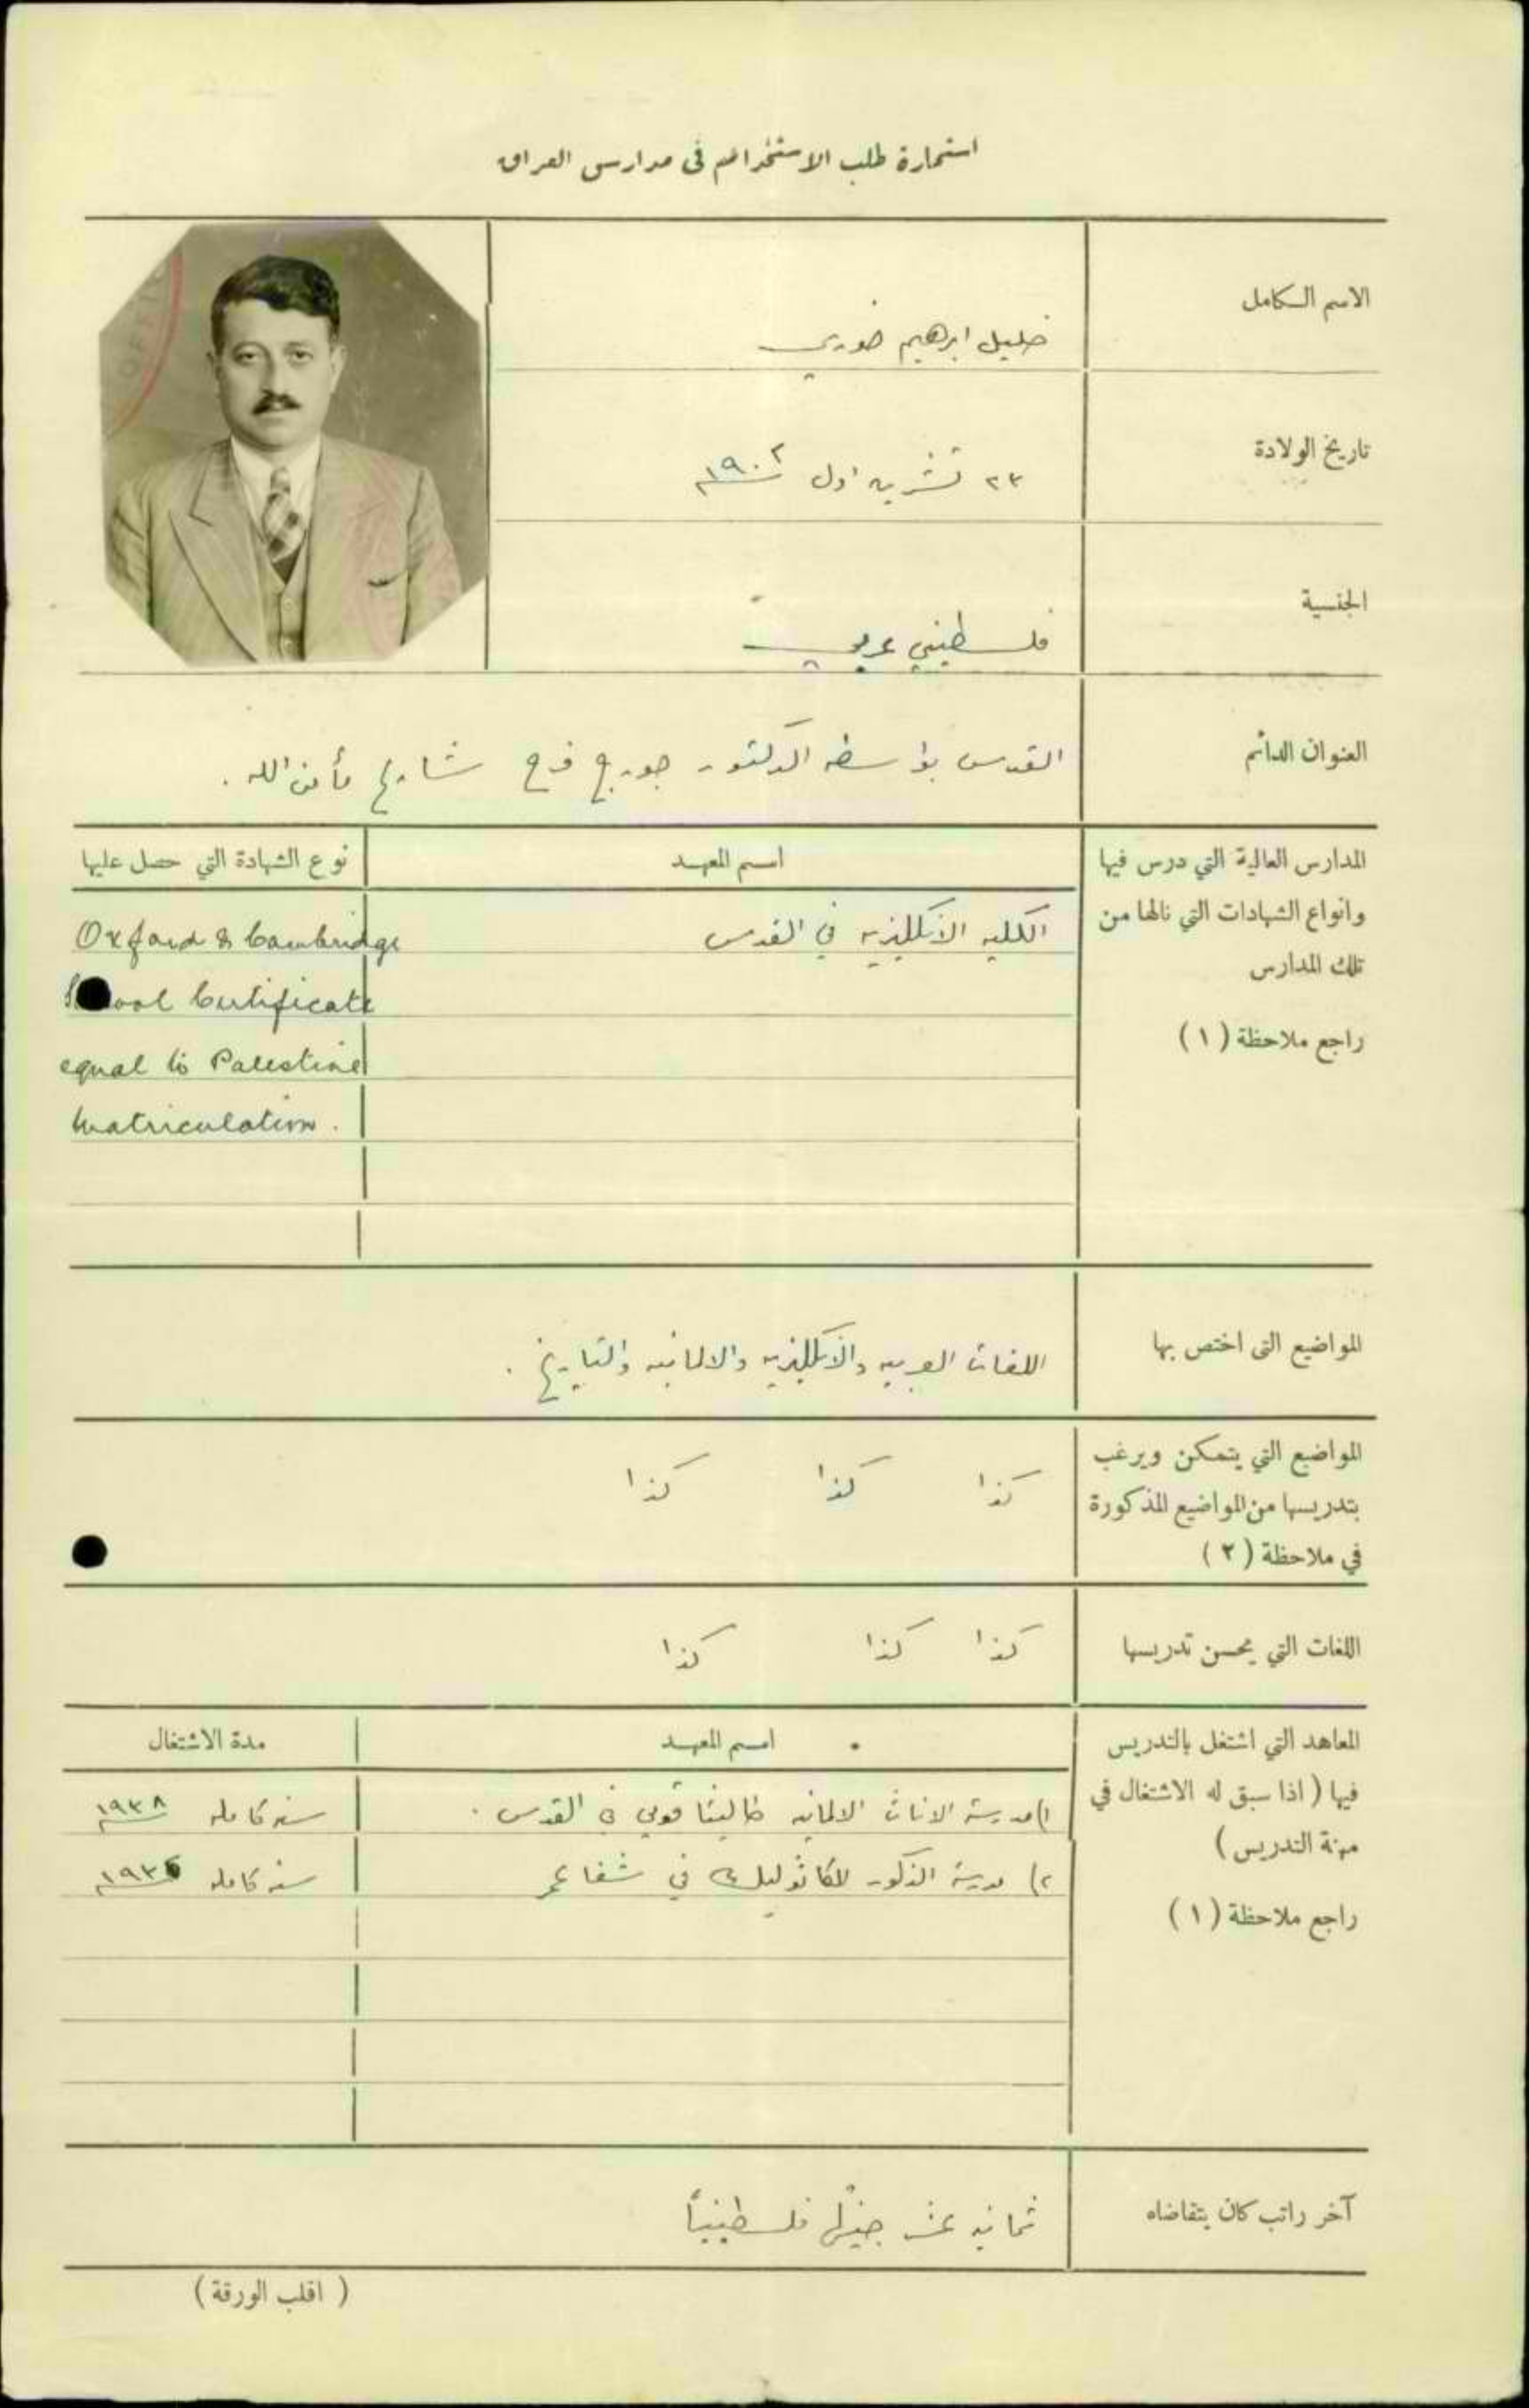 استمارة طلب الاستخدام في مدارس العراق
الاسم الكامل
خليل ابرهيم خوري
تاريخ الولادة
٢٣ تشرين اول ١٩٠٢
الجنسية
فلسطيني عربي
العنوان الدائم
القدس بواسطه الدكتور جورج فرح شارع مأمن الله .
المدارس العالية التي درس فيها
وانواع الشهادات التي نالها من
تلك المدارس
راجع ملاحظة (١)
اسم المعهد
نوع الشهادة التي حصل عليها
الكليه الانكليزيه في القدس
Oxford & Cambridge
School Certificate
equal to Palestine
Matriculation .
المواضيع التي اختص بها
اللغات العربيه والانكليزيه والالمانيه والتاريخ .
المواضيع التي يتمكن ويرغب
بتدريسها من المواضيع المذكورة
في ملاحظة (٢)
كذا كذا كذا
اللغات التي يحسن تدريسها
كذا كذا كذا
المعاهد التي اشتغل بالتدريس
فيها (اذا سبق له الاشتغال في
مهنة التدريس)
راجع ملاحظة (١)
اسم المعهد
مدة الاشتغال
١) مدرسة الاناث الالمانيه طاليثا قومي في القدس .
سنه كامله ١٩٣٨
٢) مدرسة الذكور للكاثوليك في شفاعمر
سنه كامله
آخر راتب كان يتقاضاه
ثمانيه عشر جنيهًا فلسطينيًا
(اقلب الورقة)